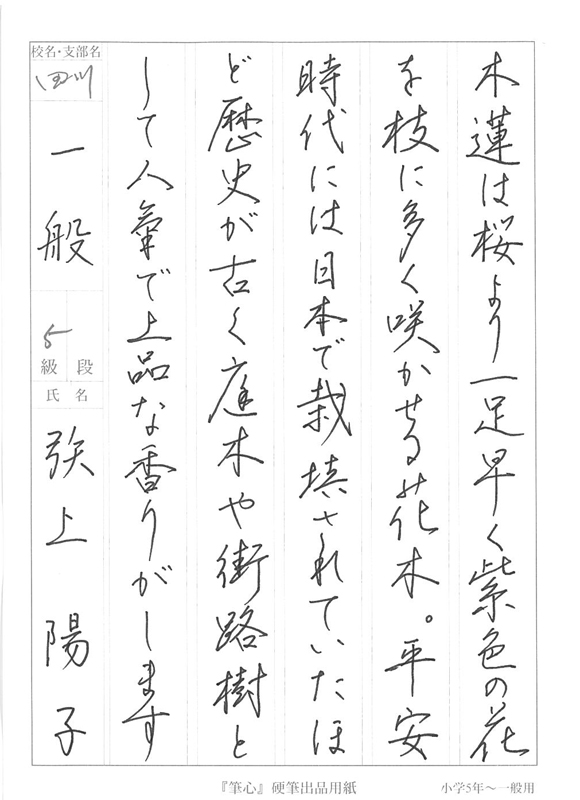 木蓮は桜より一足早く紫色の花
を枝に多く咲かせる花木。平安
時代には日本で栽培されていたほ
ど歴史が古く庭木や街路樹と
して人氣で上品な香りがします
校名・支部名
田川
一般
5
級 段
氏 名
弥上 陽子
『筆心』硬筆出品用紙
小学5年～一般用